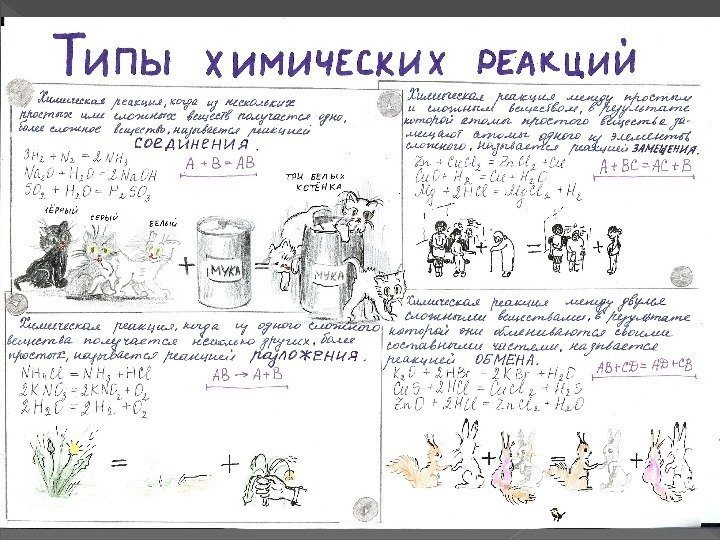 Типы химических реакций
Химическая реакция, когда из нескольких
простых или сложных веществ получается одно,
более сложное вещество, называется реакцией
СОЕДИНЕНИЯ.
3H₂ + N₂ = 2NH₃
Na₂O + H₂O = 2NaOH
SO₂ + H₂O = H₂SO₃
A + B = AB
ЧЁРНЫЙ
СЕРЫЙ
БЕЛЫЙ
ТРИ БЕЛЫХ
КОТЁНКА
+
МУКА
=
МУКА
Химическая реакция между простым
и сложным веществом, в результате
которой атомы простого вещества за-
мещают атомы одного из элементов
сложного, называется реакцией ЗАМЕЩЕНИЯ.
Zn + CuCl₂ = ZnCl₂ + Cu
CuO + H₂ = Cu + H₂O
Mg + 2HCl = MgCl₂ + H₂
A + BC = AC + B
+ = +
Химическая реакция, когда из одного сложного
вещества получается несколько других, более
простых, называется реакцией разложения.
NH₄Cl = NH₃ + HCl
2KNO₃ = 2KNO₂ + O₂
2H₂O = 2H₂ + O₂
AB → A + B
= +
Химическая реакция между двумя
сложными веществами, в результате
которой они обмениваются своими
составными частями, называется
реакцией ОБМЕНА.
K₂O + 2HBr = 2KBr + H₂O
CuS + 2HCl = CuCl₂ + H₂S
ZnO + 2HCl = ZnCl₂ + H₂O
AB + CD = AD + CB
+ = +